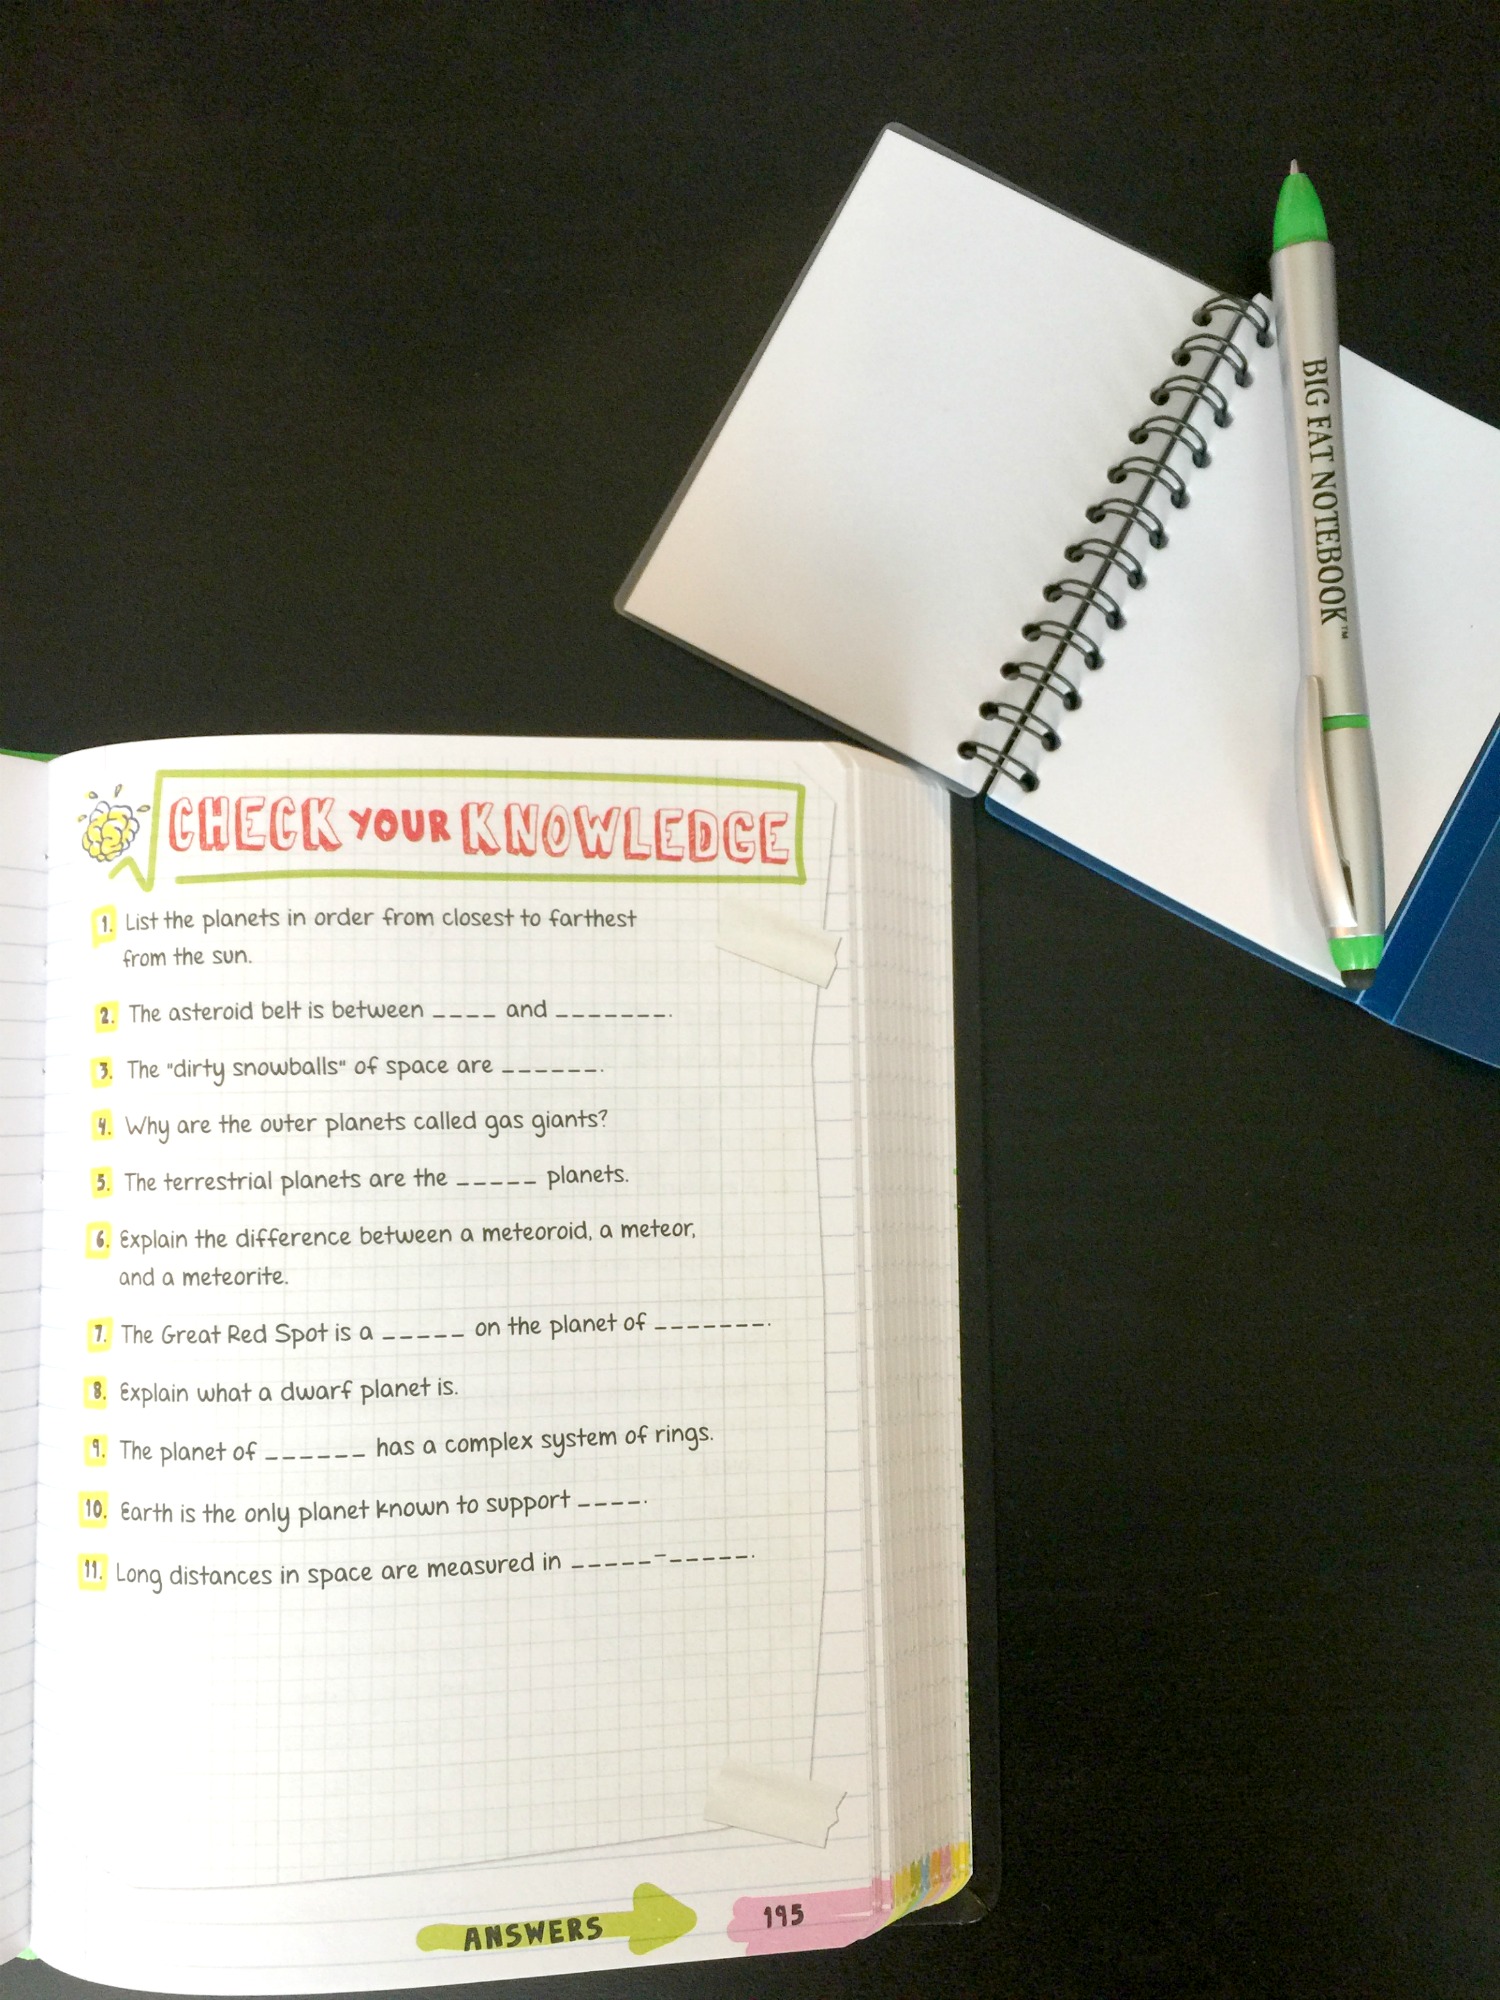 BIG FAT NOTEBOOK™
CHECK YOUR KNOWLEDGE
1. List the planets in order from closest to farthest
from the sun.
2. The asteroid belt is between ____ and _______.
3. The "dirty snowballs" of space are ______.
4. Why are the outer planets called gas giants?
5. The terrestrial planets are the _____ planets.
6. Explain the difference between a meteoroid, a meteor,
and a meteorite.
7. The Great Red Spot is a _____ on the planet of _______.
8. Explain what a dwarf planet is.
9. The planet of ______ has a complex system of rings.
10. Earth is the only planet known to support ____.
11. Long distances in space are measured in _____-_____.
ANSWERS
195